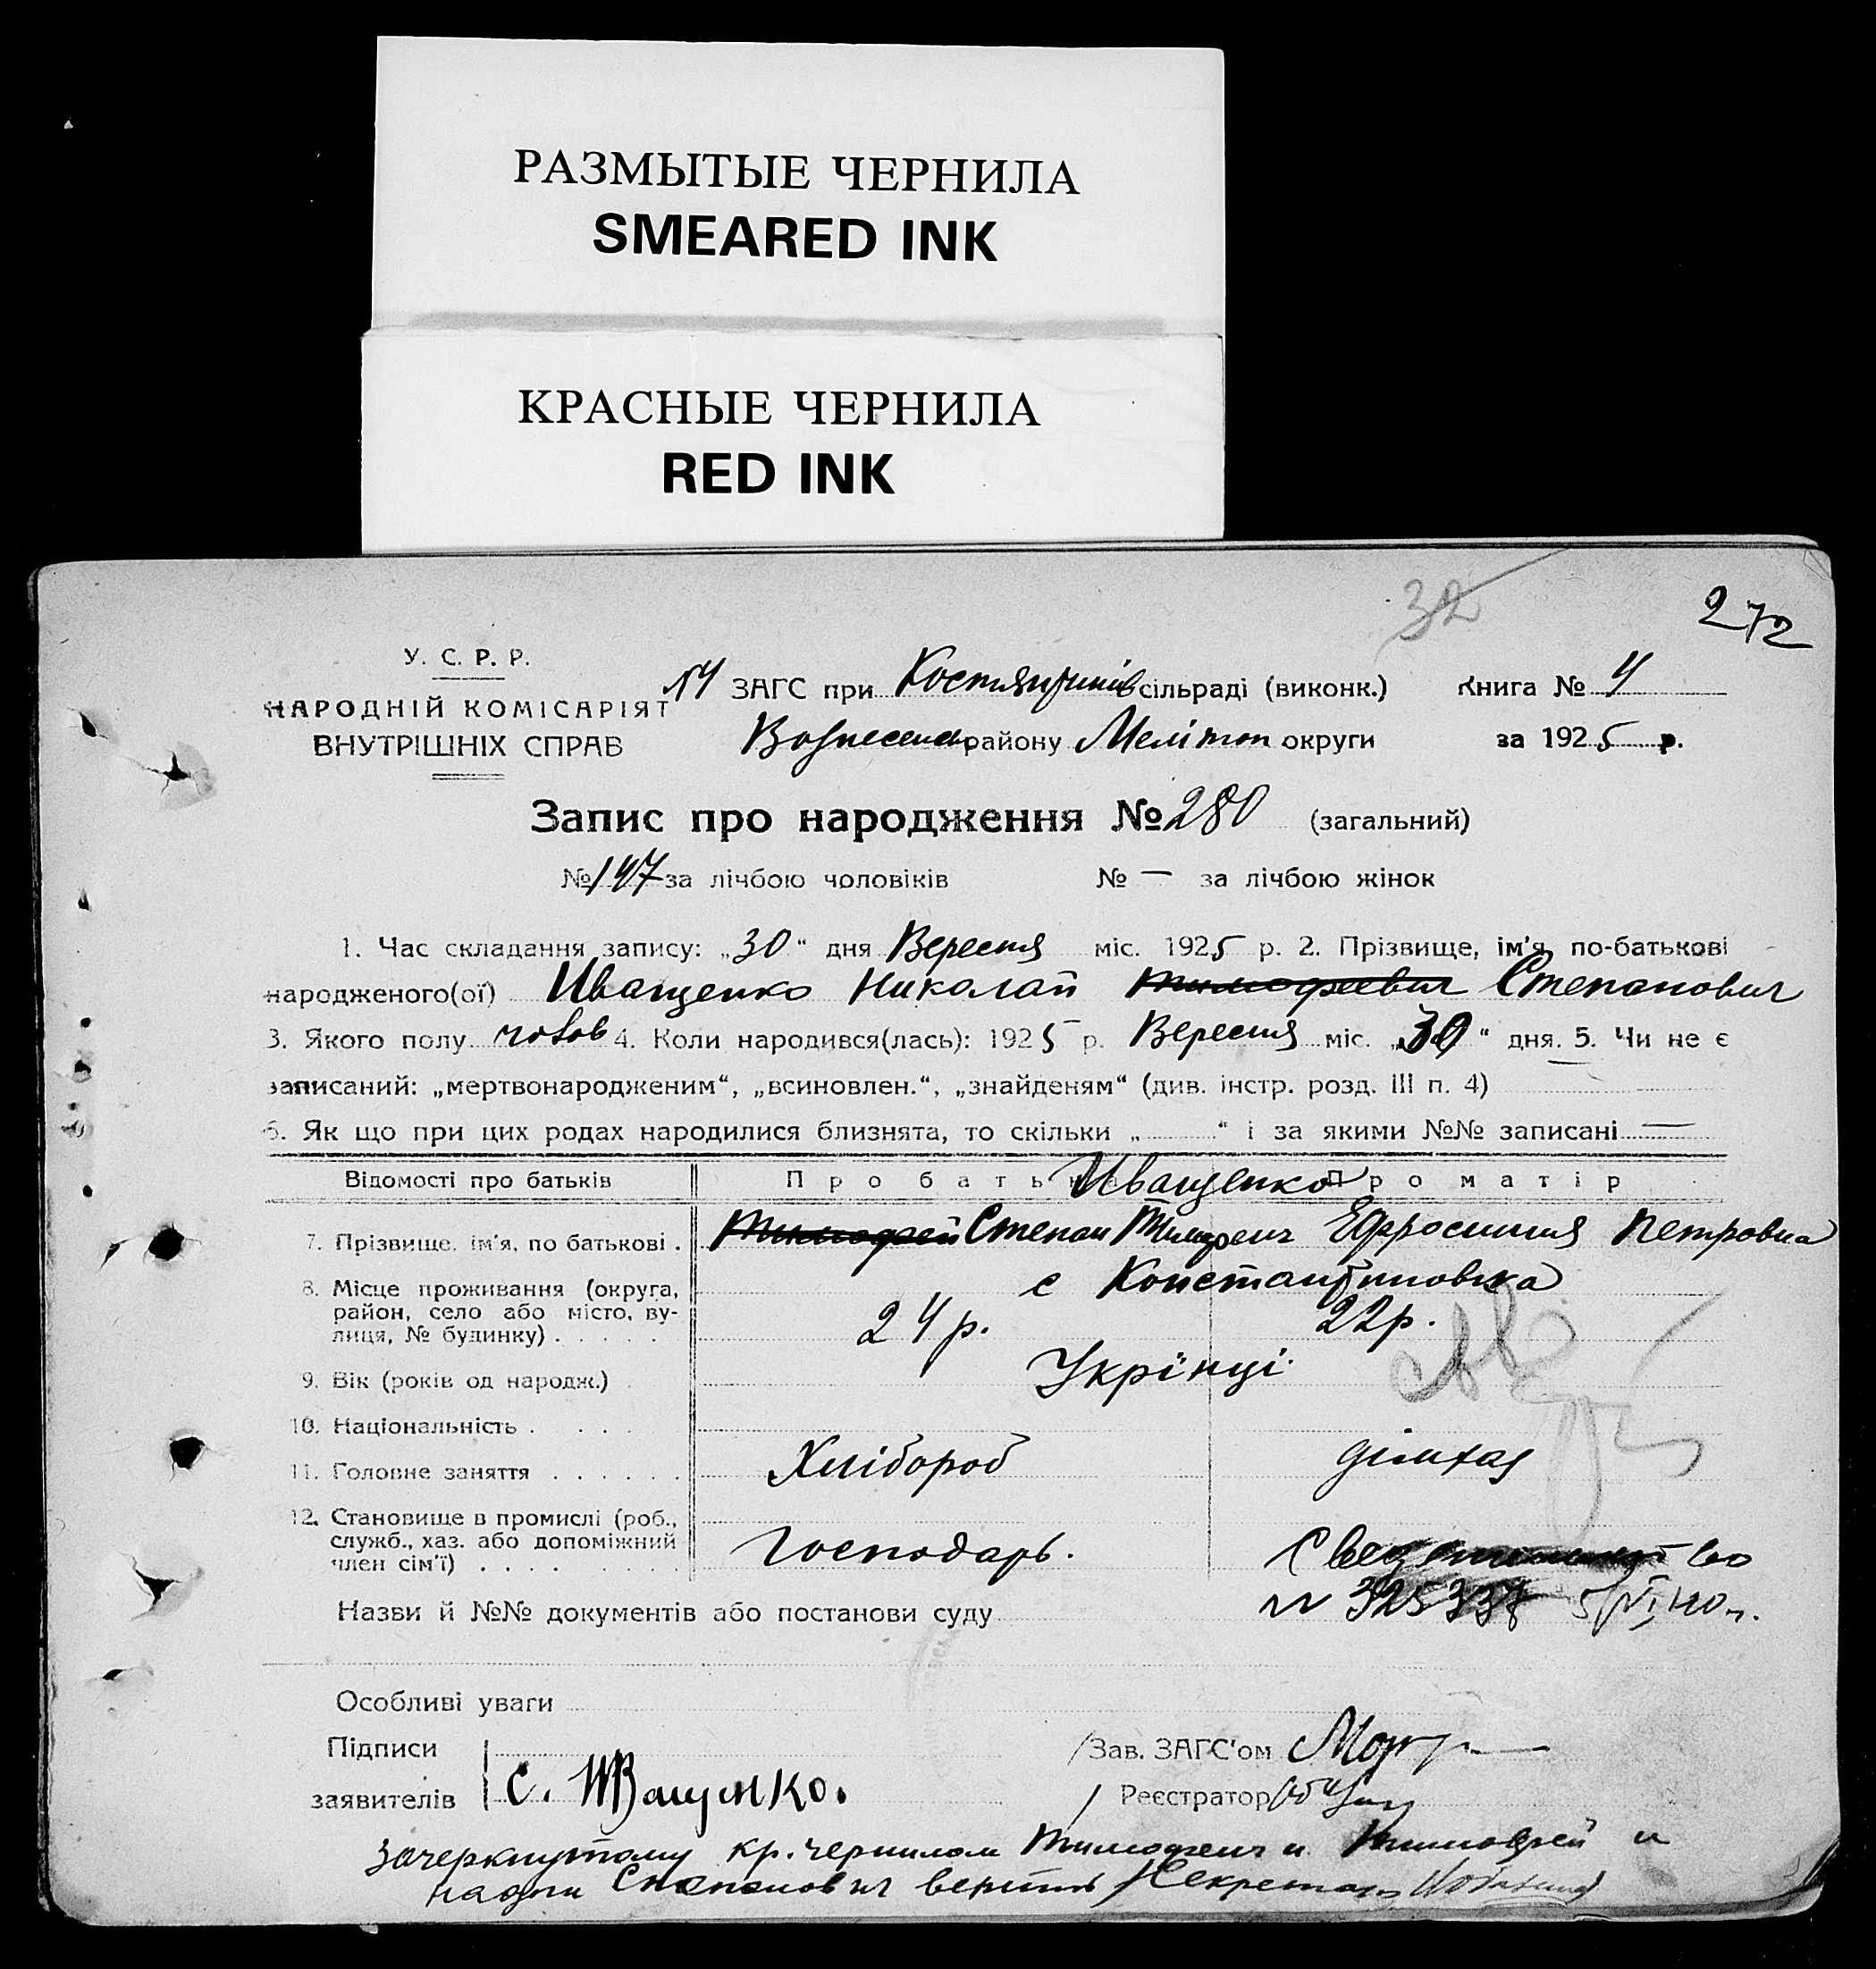 РАЗМЫТЫЕ ЧЕРНИЛА
SMEARED INK
КРАСНЫЕ ЧЕРНИЛА
RED INK
32
272
У. С. Р. Р.
НАРОДНІЙ КОМІСАРІЯТ
ВНУТРІШНІХ СПРАВ
ЗАГС при сільраді (виконк.) Книга № 4
Вознесен району Мелітоп округи за 1925 р.
Запис про народження № 280 (загальний)
№ 147 за лічбою чоловіків № — за лічбою жінок
1. Час складання запису: „30“ дня Вересня міс. 1925 р. 2. Прізвище, ім'я, по-батькові
народженого(ої) Иващенко Николай Тимофеевич Степанович
3. Якого полу чолов 4. Коли народився(лась): 1925 р. Вересня міс. „30“ дня. 5. Чи не є
записаний: „мертвонародженим“, „всиновлен.“, „знайденям“ (див. інстр. розд. III п. 4) —
6. Як що при цих родах народилися близнята, то скільки „ “ і за якими №№ записані —
Відомості про батьків Про батька Про матір
Иващенко
7. Прізвище, ім'я, по батькові . Тимофей Степан Тимофеич Ефросиния Петровна
8. Місце проживання (округа, район, село або місто, вулиця, № будинку) . . . . . с Константиновка
24 р. 22 р.
9. Вік (років од народж.) .
Украінці
10. Національність . . . .
11. Головне заняття . . . . . . Хлібороб
12. Становище в промислі (роб., служб., хаз. або допоміжний член сім'ї) . . . . . . . Господарь.
№ 325338
Назви й №№ документів або постанови суду
Особливі уваги
Підписи
заявителів
С. Иващенко.
Зав. ЗАГС'ом
Реєстратор
Зачеркнутому кр. чернилом Тимофеич и Тимофей и
надпи Степанович верить Секретарь